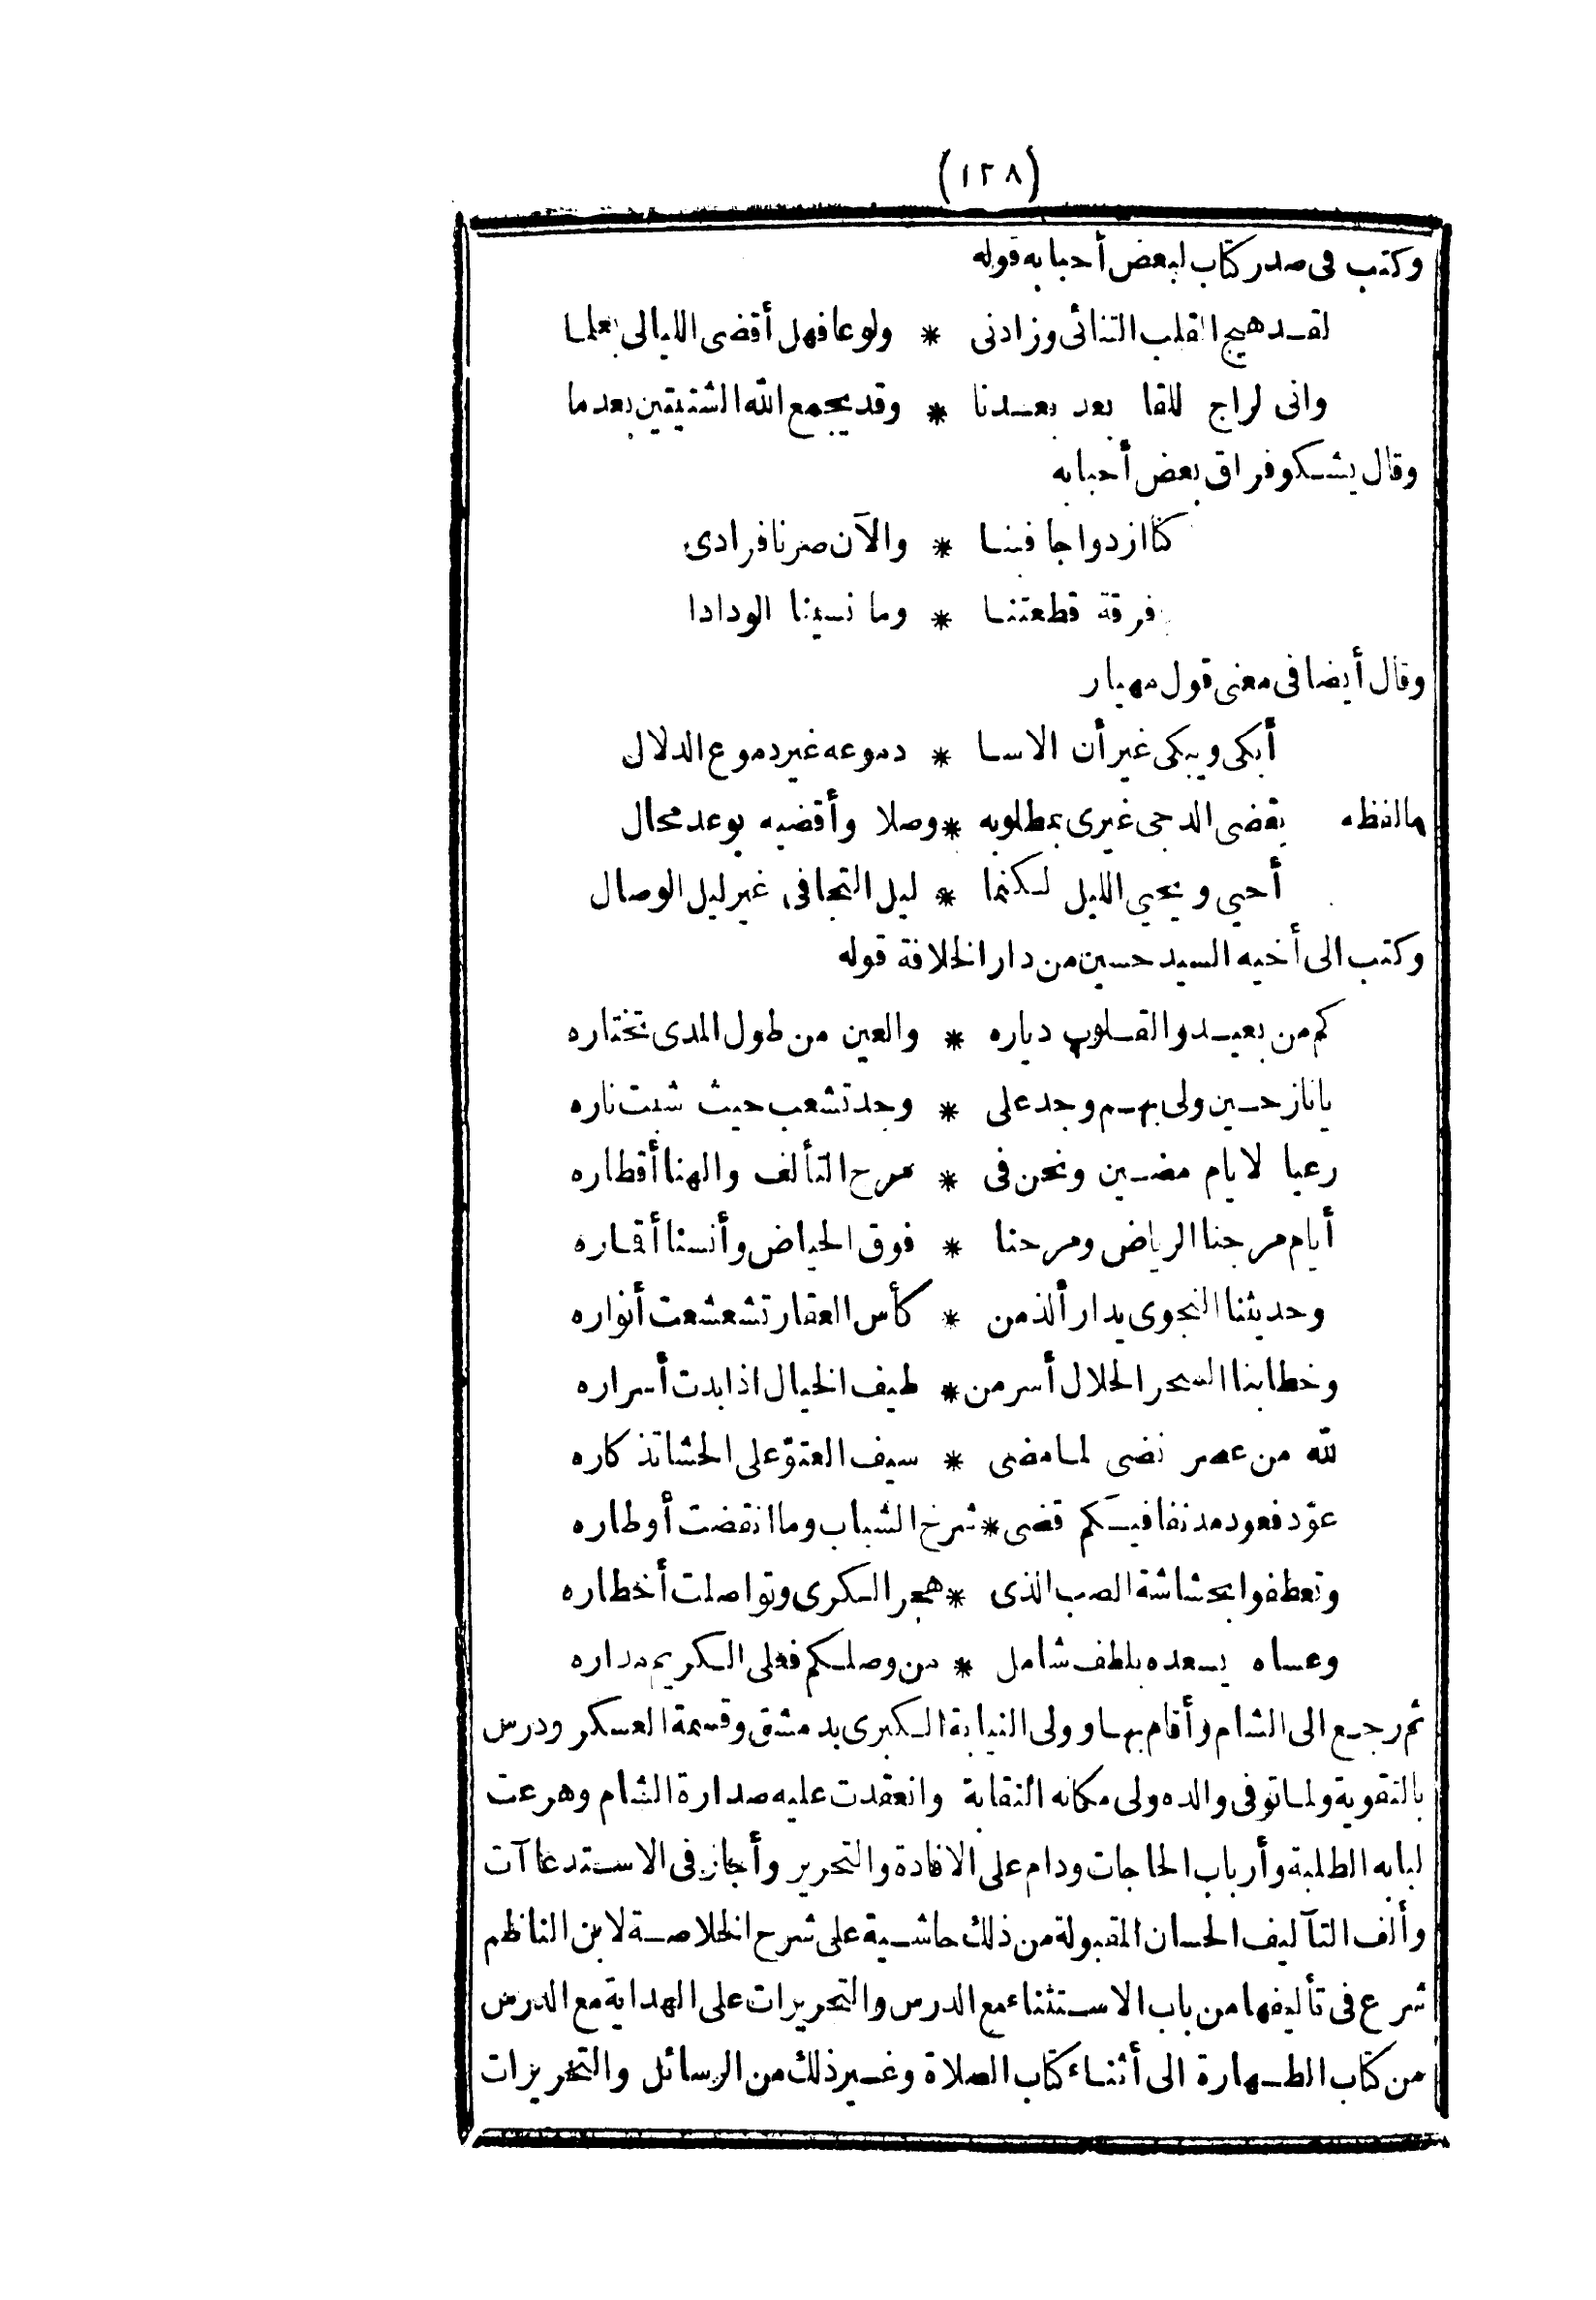 (١٢٨)
وكتب فى صدر كتاب لبعض أحبابه قوله
لقد هيج القلب التنائى وزادنى * ولوعا فهل أقضى الليالى بعلما
وانى لراج للقا بعد بعدنا * وقد يجمع الله الشتيتين بعد ما
وقال يشكو فراق بعض أحبابه
كنا ازدواجا فبنا * والآن صرنا فرادى
فرقة قطعتنا * وما نسينا الودادا
وقال أيضا فى معنى قول مهيار
أبكى ويبكى غير أن الاسا * دموعه غير دموع الدلال
مالفظه يقضى الدجى غيرى بمطلوبه * وصلا وأقضيه بوعد محال
أحيي ويحيي الليل لكنما * ليل التجافى غير ليل الوصال
وكتب الى أخيه السيد حسين من دار الخلافة قوله
كم من بعيد والقلوب دياره * والعين من طول المدى تختاره
يا نازحين ولى بهم وجد على * وجد تشعب حيث شبت ناره
رعيا لايام مضين ونحن فى * مرح التألف والهنا أقطاره
أيام مرجنا الرياض ومرحنا * فوق الحياض وأنسنا أقماره
وحديثنا النجوى يدار ألذ من * كأس العقار تشعشعت أنواره
وخطابنا السحر الحلال أسر من * طيف الخيال اذا بدت أسراره
لله من عصر نضى لما مضى * سيف العتو على الحشا تذكاره
عوّد فعود مدنفا فيكم قضى * شرخ الشباب وما انقضت أوطاره
وتعطفوا بحشاشة الصب الذى * هجر الكرى وتواصلت أخطاره
وعساه يسعده بلطف شامل * من وصلكم فعلى الكريم مداره
ثم رجع الى الشام وأقام بها وولى النيابة الكبرى بدمشق وقسمة العسكر ودرس
بالتقوية ولما توفى والده ولى مكانه النقابة وانعقدت عليه صدارة الشام وهرعت
لبابه الطلبة وأرباب الحاجات ودام على الافادة والتحرير وأجاز فى الاستدعاآت
وألف التآليف الحسان المقبولة من ذلك حاشية على شرح الخلاصة لابن الناظم
شرع فى تأليفها من باب الاستثناء مع الدرس والتحريرات على الهداية مع الدرس
من كتاب الطهارة الى أثناء كتاب الصلاة وغير ذلك من الرسائل والتحريرات